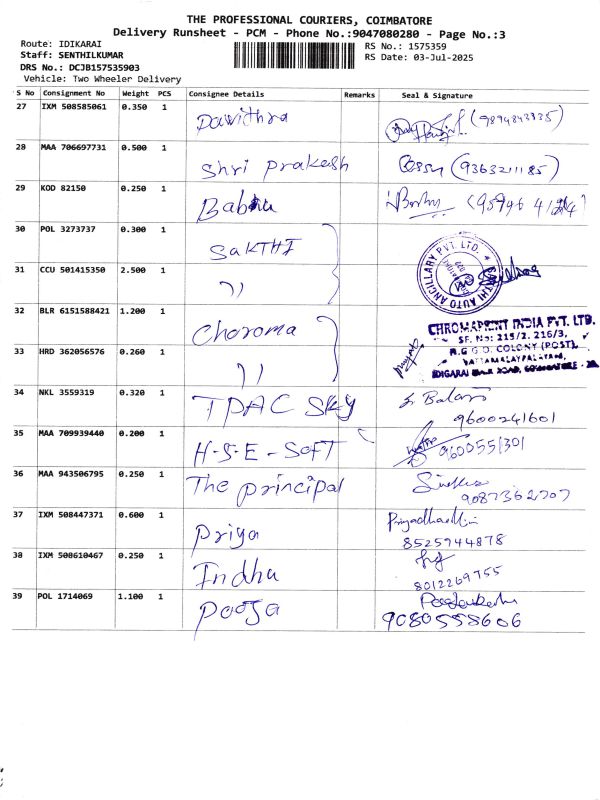 THE PROFESSIONAL COURIERS, COIMBATORE
Delivery Runsheet - PCM - Phone No.:9047080280 - Page No.:3
Route: IDIKARAI
RS No.: 1575359
Staff: SENTHILKUMAR
RS Date: 03-Jul-2025
DRS No.: DCJB157535903
Vehicle: Two Wheeler Delivery
S No Consignment No Weight PCS Consignee Details Remarks Seal & Signature
27 IXM 508585061 0.350 1 Pavithra
28 MAA 706697731 0.500 1 Shri Prakash (9363211185)
29 KOD 82150 0.250 1 Babu
30 POL 3273737 0.300 1 SAKTHI
SAKTHI AUTO ANCILLARY PVT. LTD.
31 CCU 501415350 2.500 1 ))
32 BLR 6151588421 1.200 1 Choroma
CHROMAPRINT INDIA PVT. LTD.
SF. No: 215/2, 216/3,
33 HRD 362056576 0.260 1 ))
R.G G.D. COLONY (POST),
VATTAMALAYPALAYAM,
IDIGARAI ROAD, COIMBATORE
34 NKL 3559319 0.320 1 TPAC SKY Balan
9600241601
35 MAA 709939440 0.200 1 H-S-E-SOFT 9600551301
36 MAA 943506795 0.250 1 The principal
9087362707
37 IXM 508447371 0.600 1 Priya
8525944878
38 IXM 508610467 0.250 1 Indhu
8012269755
39 POL 1714069 1.100 1 Pooja
9080558606